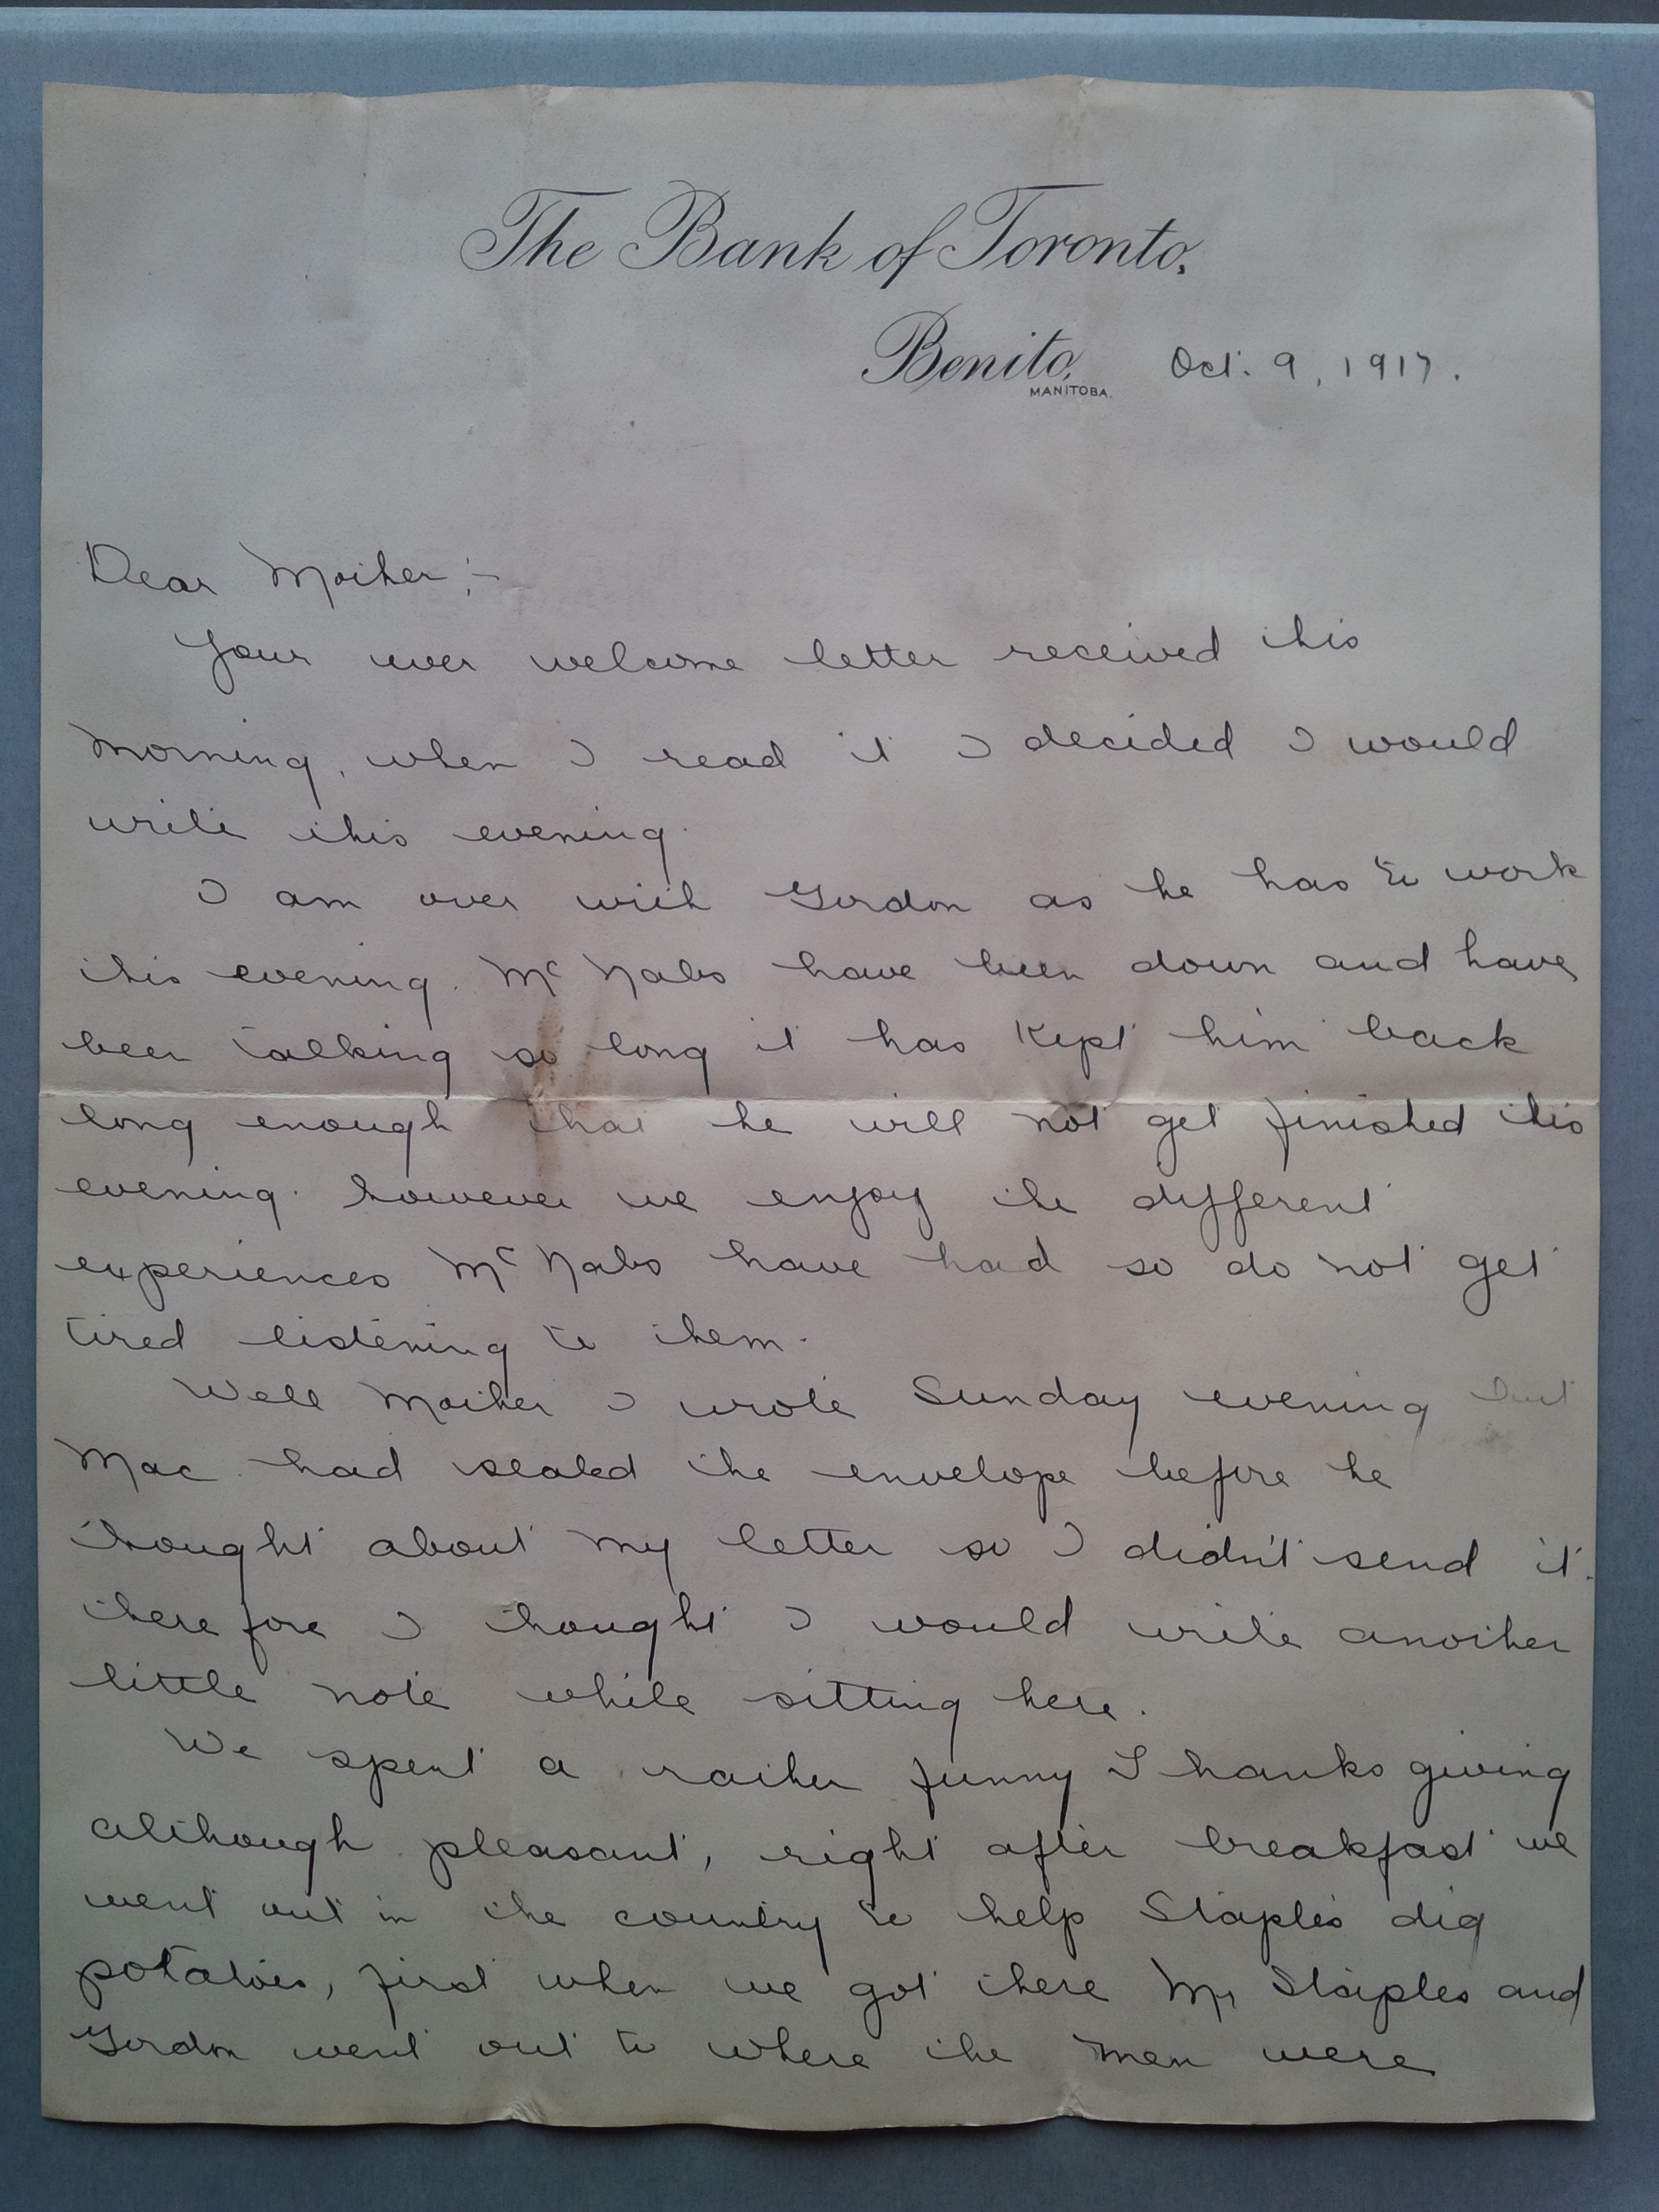 The Bank of Toronto,
Benito, Oct. 9, 1917.
MANITOBA.
Dear Mother;-
Your ever welcome letter received this
morning, when I read it I decided I would
write this evening.
I am over with Gordon as he has to work
this evening. McNabs have been down and have
been talking so long it has kept him back
long enough that he will not get finished this
evening. however we enjoy the different
experiences McNabs have had so do not get
tired listening to them.
Well Mother I wrote Sunday evening but
Mac had sealed the envelope before he
thought about my letter so I didn't send it.
therefore I thought I would write another
little note while sitting here.
We spent a rather funny Thanksgiving
although pleasant, right after breakfast we
went out in the country to help Staples dig
potatoes, first when we got there Mr Staples and
Gordon went out to where the men were